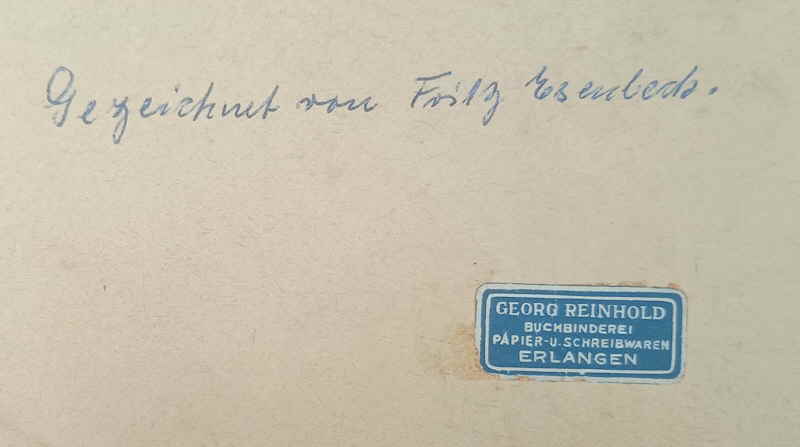 Gezeichnet von Fritz Esenbeck.
GEORG REINHOLD
BUCHBINDEREI
PAPIER-U.SCHREIBWAREN
ERLANGEN